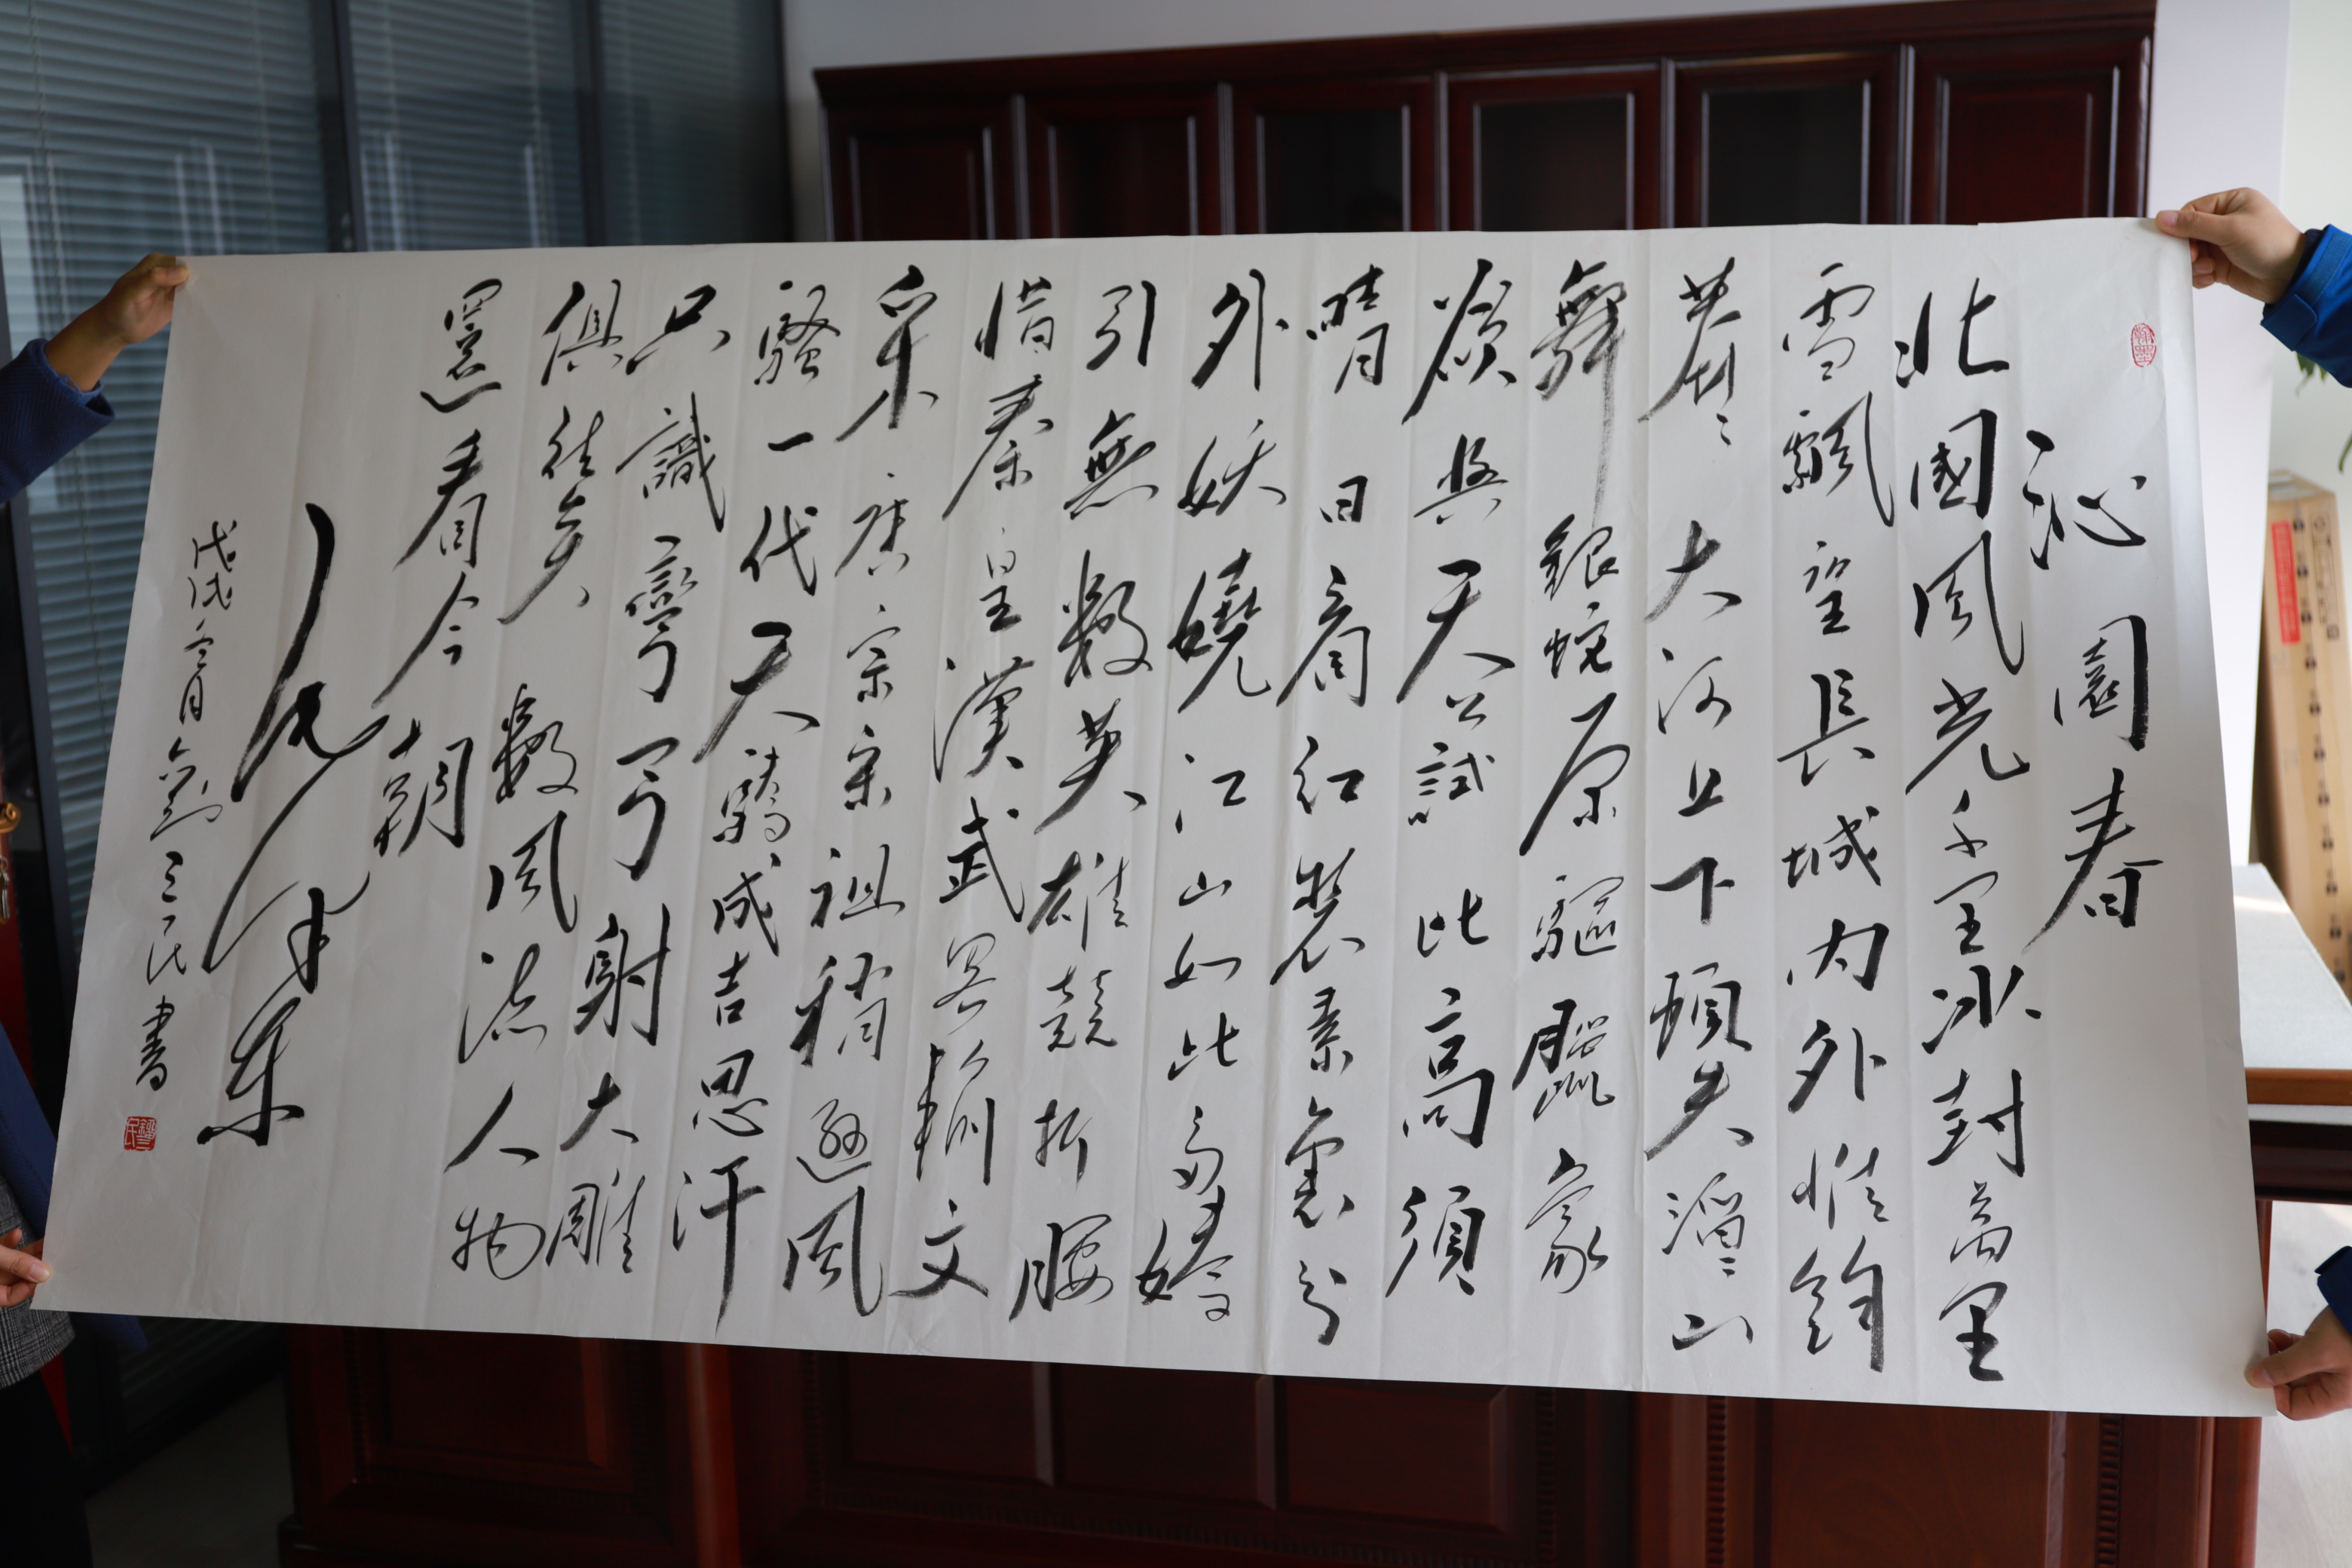 翰墨
沁園春
北國風光千里冰封萬里
雪飄望長城內外惟餘
莽〻大河上下頓失滔〻山
舞銀蛇原驅臘象
欲與天公試比高須
晴日看紅裝素裹分
外妖嬈江山如此多嬌
引無數英雄競折腰
惜秦皇漢武略輸文
采唐宗宋祖稍遜風
騷一代天驕成吉思汗
只識彎弓射大雕
俱往矣數風流人物
還看今朝
毛澤東
戊戌冬月劉三民書